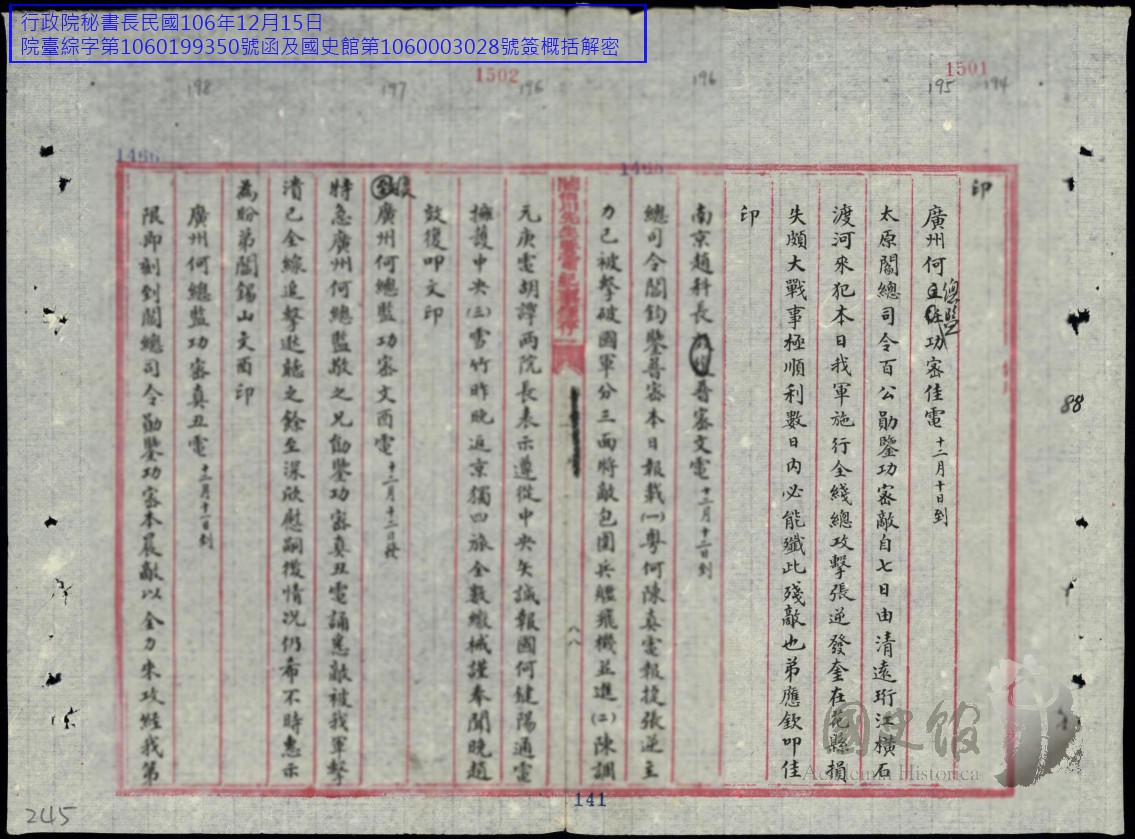 行政院秘書長民國106年12月15日
院臺綜字第1060199350號函及國史館第1060003028號簽概括解密
1502
1501
198
197
196
196
195
194
1466
1465
印
廣州何總監功密佳電 十二月十日到
太原閻總司令百公勛鑒功密敵自七日由清遠珩江橫石
渡河來犯本日我軍施行全綫總攻擊張逆發奎在花縣損
失頗大戰事極順利數日內必能殲此殘敵也弟應欽叩佳
印
南京趙科長普密文電 十二月十二日到
總司令閻鈞鑒普密本日報載(一)粵何陳真電報投張逆主
力已被擊破國軍分三面將敵包圍兵艦飛機並進(二)陳調
元庚電胡譚兩院長表示遵從中央矢誠報國何鍵陽通電
擁護中央(三)雪竹昨晚返京獨四旅全數繳械謹奉聞晚趙
致復叩文印
復
廣州何總監功密文酉電 十二月十二日發
特急廣州何總監敬之兄勛鑒功密真丑電誦悉敵被我軍擊
潰已全線追擊逖聽之餘至深欣慰嗣後情況仍希不時惠示
為盼弟閻錫山文酉印
廣州何總監功密真丑電 十二月十二日到
限即刻到閻總司令勛鑒功密本晨敵以全力來攻經我第
八八
88
141
245
國史館
Academia Historica